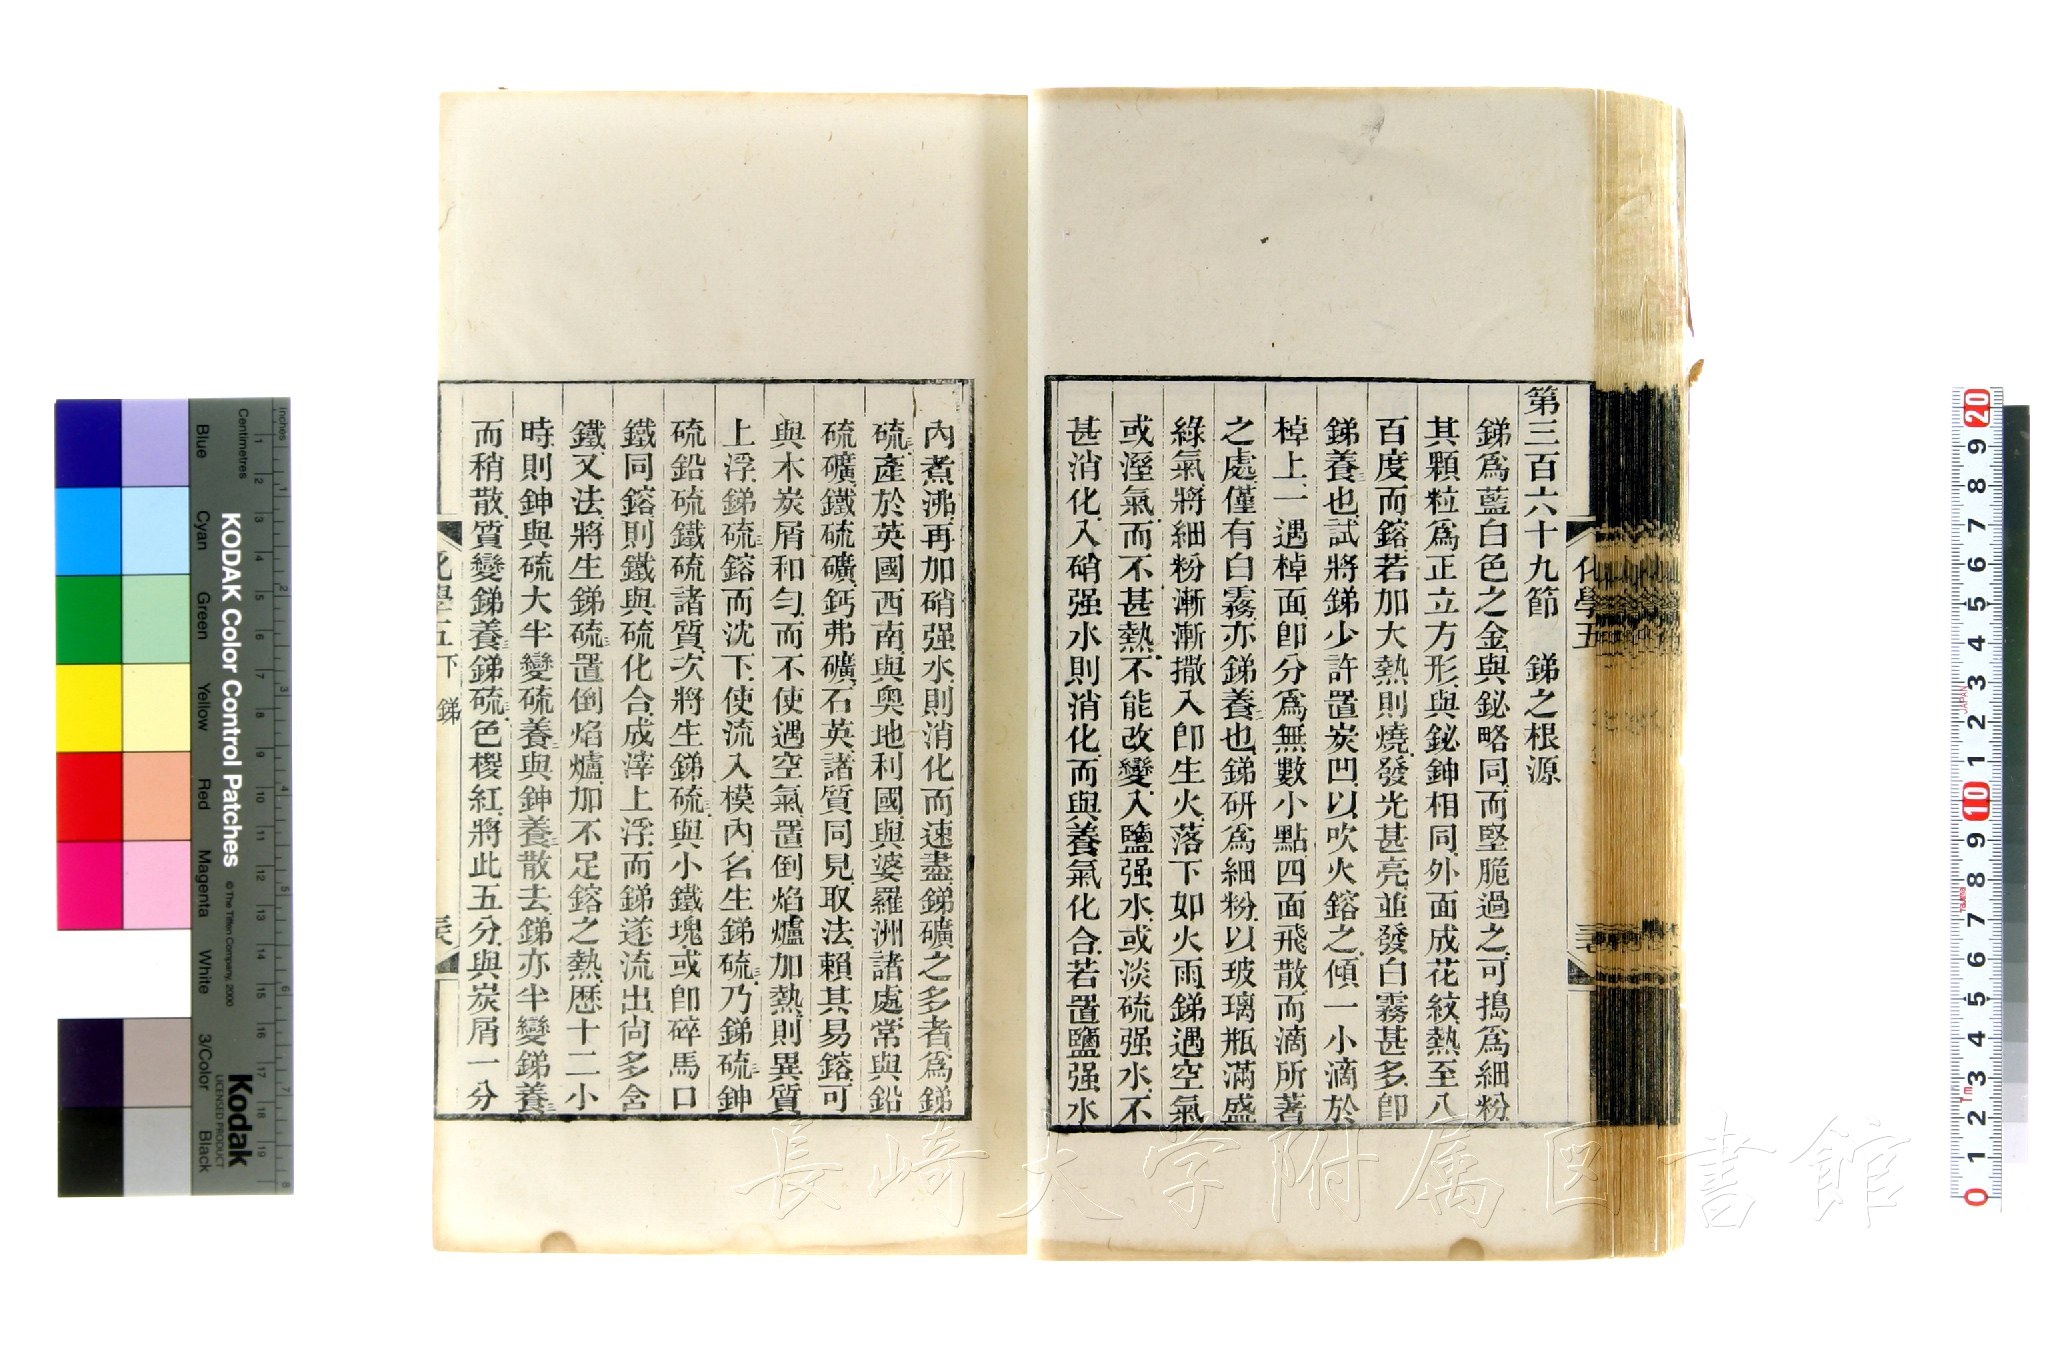 化學五
第三百六十九節　銻之根源
銻爲藍白色之金與鉍略同而堅脆過之可搗爲細粉
其顆粒爲正立方形與鉍鉮相同外面成花紋熱至八
百度而鎔若加大熱則燒發光甚亮並發白霧甚多卽
銻養三也試將銻少許置炭凹以吹火鎔之傾一小滴於
棹上一遇棹面卽分爲無數小點四面飛散而滴所著
之處僅有白霧亦銻養三也銻研爲細粉以玻璃瓶滿盛
綠氣將細粉漸漸撒入卽生火落下如火雨銻遇空氣
或溼氣而不甚熱不能改變入鹽强水或淡硫强水不
甚消化入硝强水則消化而與養氣化合若置鹽强水
內煮沸再加硝强水則消化而速盡銻礦之多者爲銻
硫三產於英國西南與奧地利國與婆羅洲諸處常與鉛
硫礦鐵硫礦鈣弗礦石英諸質同見取法賴其易鎔可
與木炭屑和勻而不使遇空氣置倒焰爐加熱則異質
上浮銻硫三鎔而沈下使流入模內名生銻硫三乃銻硫三鉮
硫鉛硫鐵硫諸質次將生銻硫三與小鐵塊或卽碎馬口
鐵同鎔則鐵與硫化合成滓上浮而銻遂流出尙多含
鐵又法將生銻硫三置倒焰爐加不足鎔之熱歷十二小
時則鉮與硫大半變硫養二與鉮養三散去銻亦半變銻養三
而稍散質變銻養三銻硫三色椶紅將此五分與炭屑一分
化學五下　銻
Kodak
LICENSED PRODUCT
KODAK Color Control Patches
© The Tiffen Company, 2000
Centimetres
Inches
Blue
Cyan
Green
Yellow
Red
Magenta
White
3/Color
Black
長崎大学附属図書館